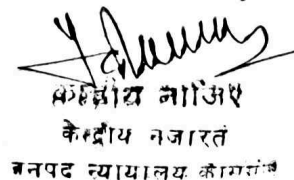 केन्द्रीय नाजिर
केन्द्रीय नजारत
जनपद न्यायालय